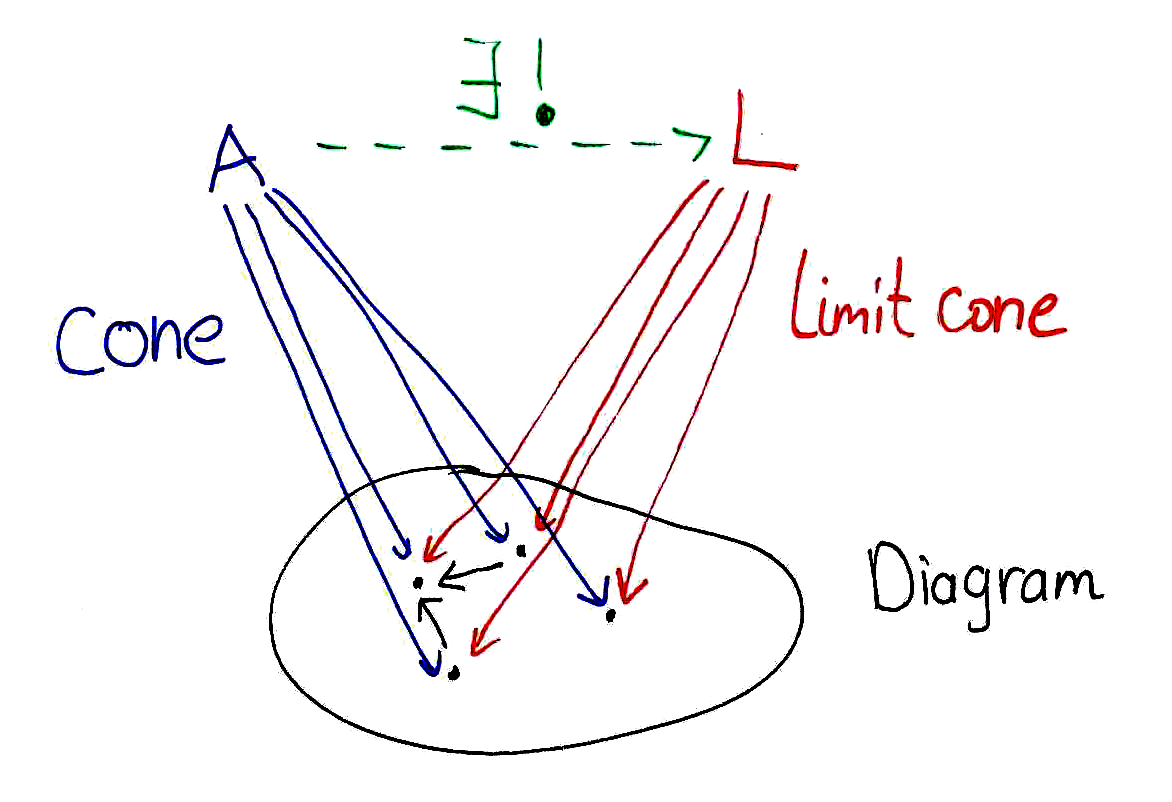 ∃!
A
L
Cone
Limit cone
Diagram